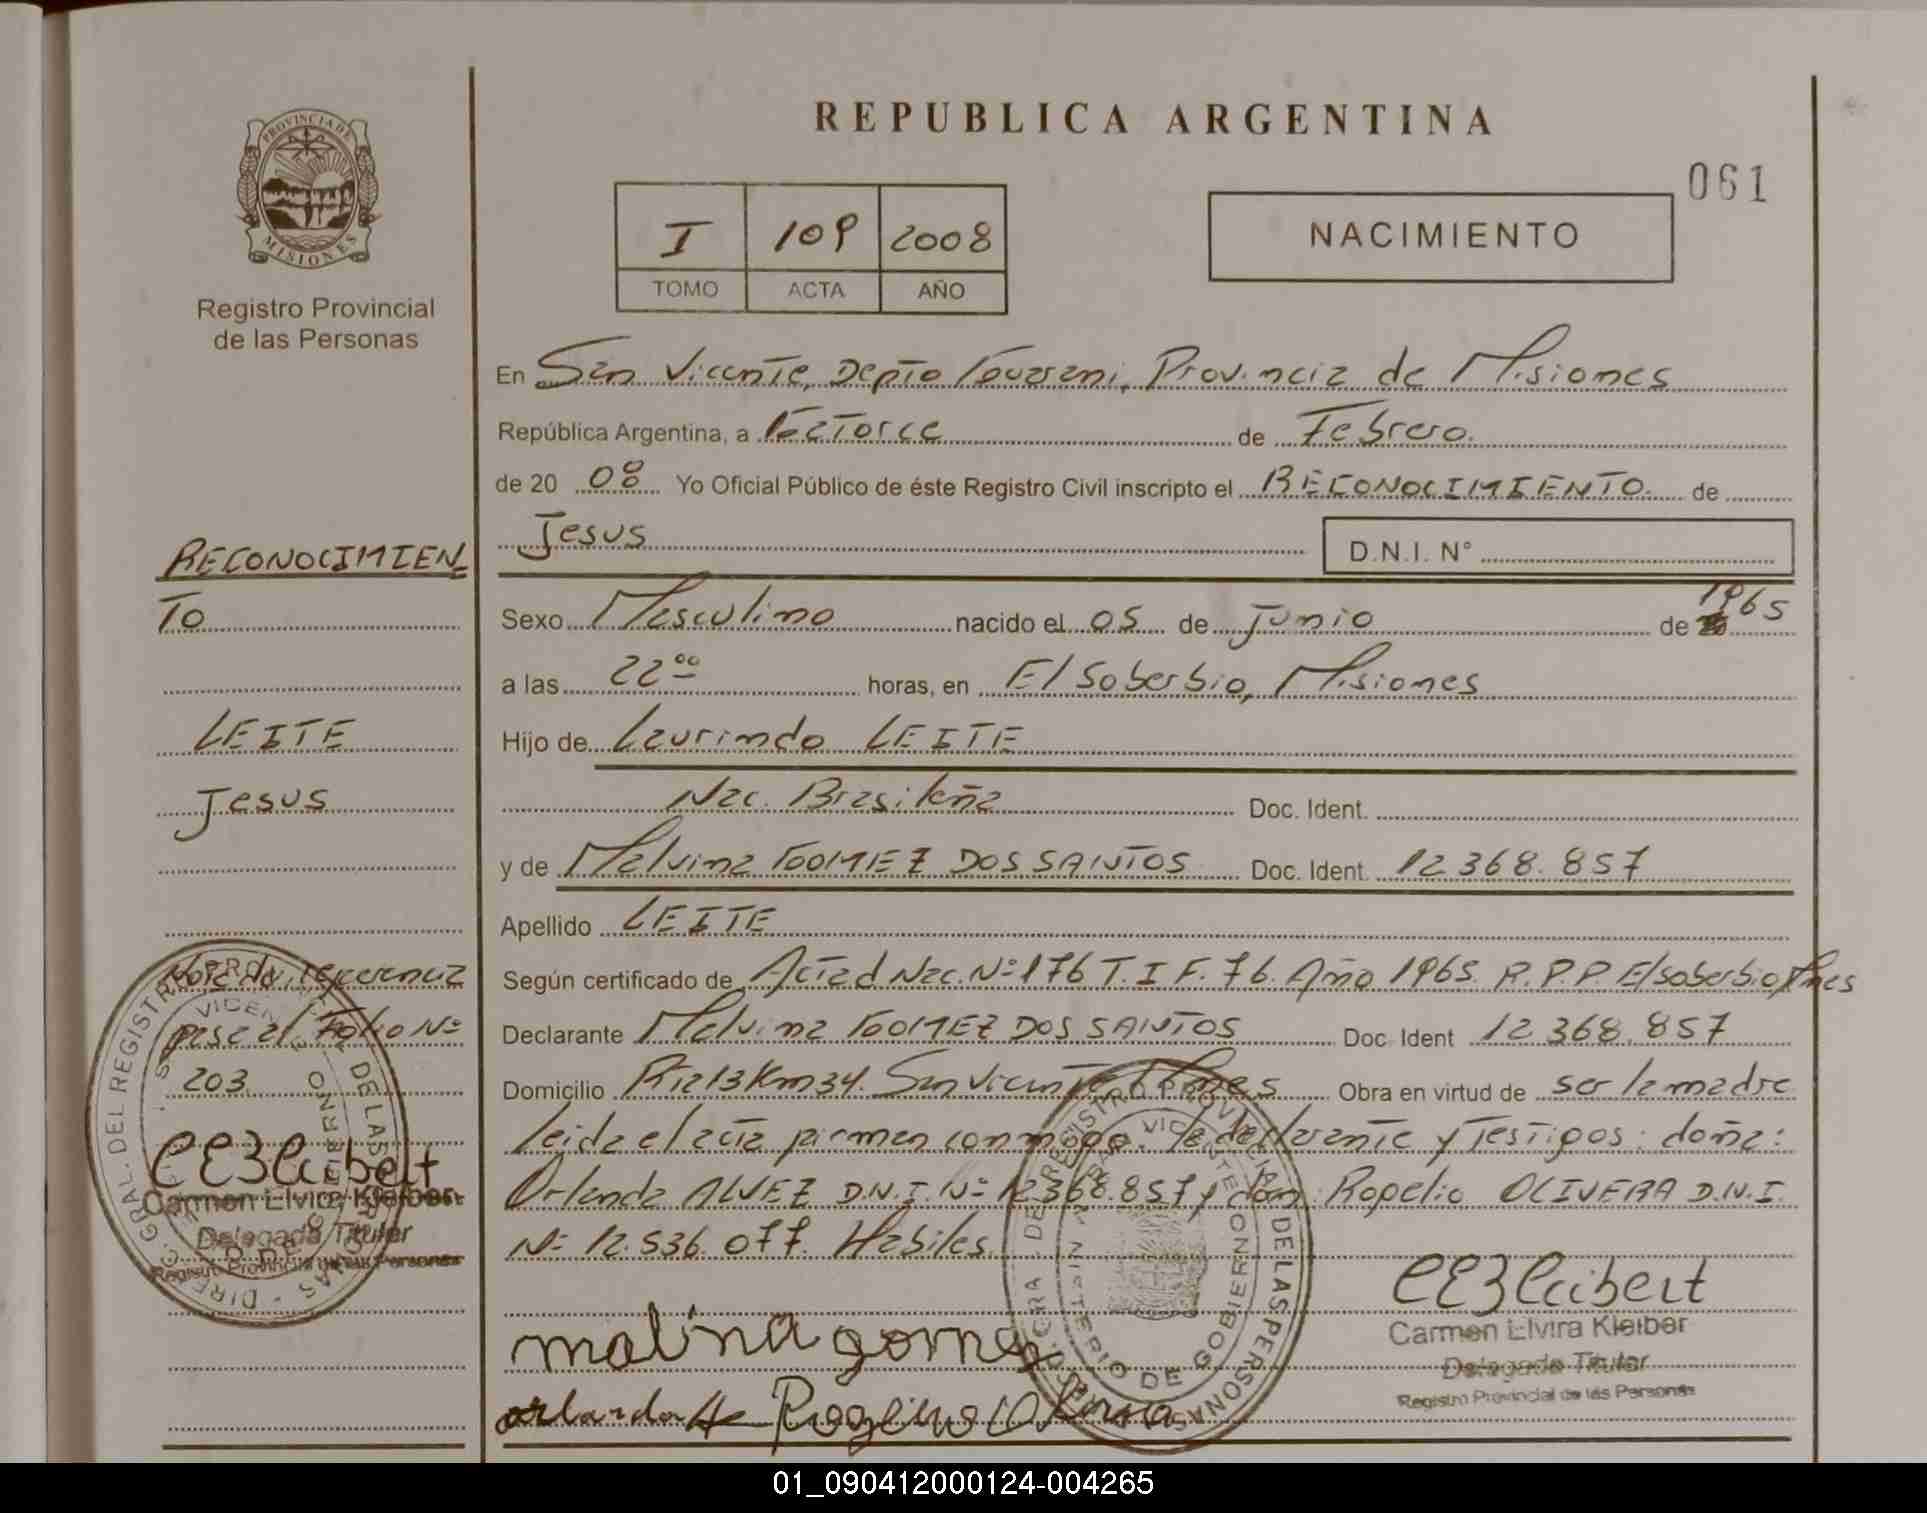 REPUBLICA ARGENTINA
061
PROVINCIA DE MISIONES
Registro Provincial
de las Personas
I 109 2008
TOMO ACTA AÑO
NACIMIENTO
En San Vicente, Depto Guarani, Provincia de Misiones
República Argentina, a Catorce de Febrero.
de 20 08 Yo Oficial Público de éste Registro Civil inscripto el RECONOCIMIENTO. de
Jesus D.N.I. N°
Sexo Masculino nacido el 05 de Junio de 1965
a las 22 00 horas, en El Soberbio, Misiones
Hijo de Laurindo LEITE
Nac. Brasileña Doc. Ident.
y de Malvina GOMEZ DOS SANTOS Doc. Ident. 12.368.857
Apellido LEITE
Según certificado de Acta d Nac. N° 176 T. I F. 76. Año 1965. R.P.P. El Soberbio, Mnes
Declarante Malvina GOMEZ DOS SANTOS Doc. Ident 12.368.857
Domicilio Km 34. San Vicente Mnes Obra en virtud de ser la madre
leida el acta firman conmigo. la declarante y Testigos: doña:
Orlanda ALVEZ D.N.I. N° 12.368.857 y don: Rogelio OLIVERA D.N.I.
N° 12.536.077. Habiles.
malina gomez
orlanda
RECONOCIMIEN
TO
LEITE
Jesus
Nota de referencia
pase al Folio N°
203.
Carmen Elvira Kleiber
Delegada Titular
Registro Provincial de las Personas
Carmen Elvira Kleiber
Delegada Titular
Registro Provincial de las Personas
01_090412000124-004265